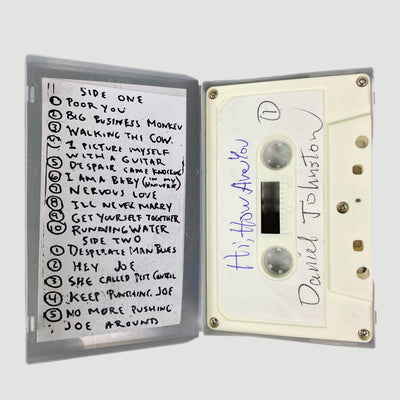 SIDE ONE
① POOR YOU
② BIG BUSINESS MONKEY
③ WALKING THE COW.
④ I PICTURE MYSELF
WITH A GUITAR
⑤ DESPAIR CAME KNOCKING
⑥ I AM A BABY (IN MY UNIVERSE)
⑦ NERVOUS LOVE
⑧ ILL NEVER MARRY
⑨ GET YOURSELF TOGETHER
⑩ RUNNING WATER
SIDE TWO
① DESPERATE MAN BLUES
② HEY JOE
③ SHE CALLED PEST CONTROL
④ KEEP PUNCHING JOE
⑤ NO MORE PUSHING
JOE AROUND
①
Hi, How Are You
Daniel Johnston